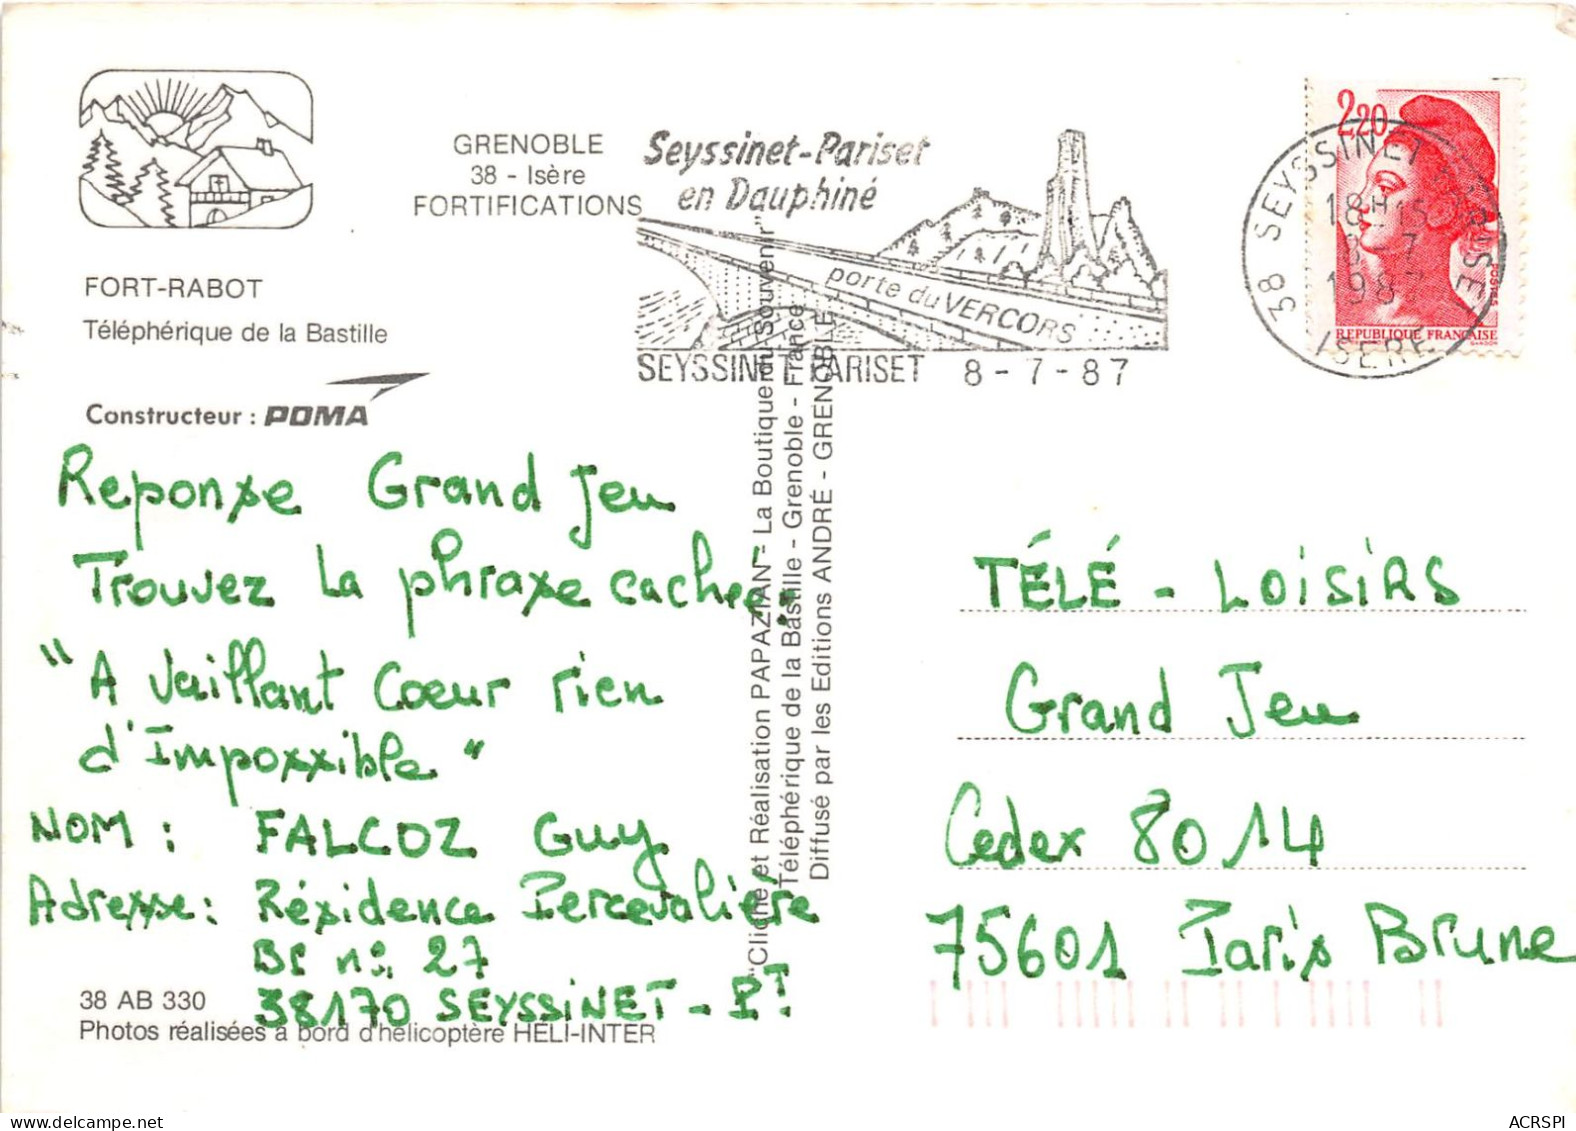 GRENOBLE
38 - Isère
FORTIFICATIONS
Seyssinet-Pariset
en Dauphiné
porte du VERCORS
SEYSSINET PARISET 8 - 7 - 87
2,20
REPUBLIQUE FRANÇAISE
POSTES
GANDON
38 SEYSSINET PARISET
18H15
8-7
1987
ISERE
FORT-RABOT
Téléphérique de la Bastille
Constructeur : POMA
Reponse Grand Jeu
Trouvez la phrase cachée:
"A Vaillant Coeur rien
d'Impossible"
NOM : FALCOZ Guy
Adresse : Résidence Percevalière
Bt n°. 27
38170 SEYSSINET - PT
38 AB 330
Photos réalisées à bord d'hélicoptère HELI-INTER
"Cliché et Réalisation PAPAZIAN - La Boutique du Souvenir"
Téléphérique de la Bastille - Grenoble - France
Diffusé par les Editions ANDRÉ - GRENOBLE
TÉLÉ - LOISIRS
Grand Jeu
Cedex 8014
75601 Paris Brune
ACRSPI